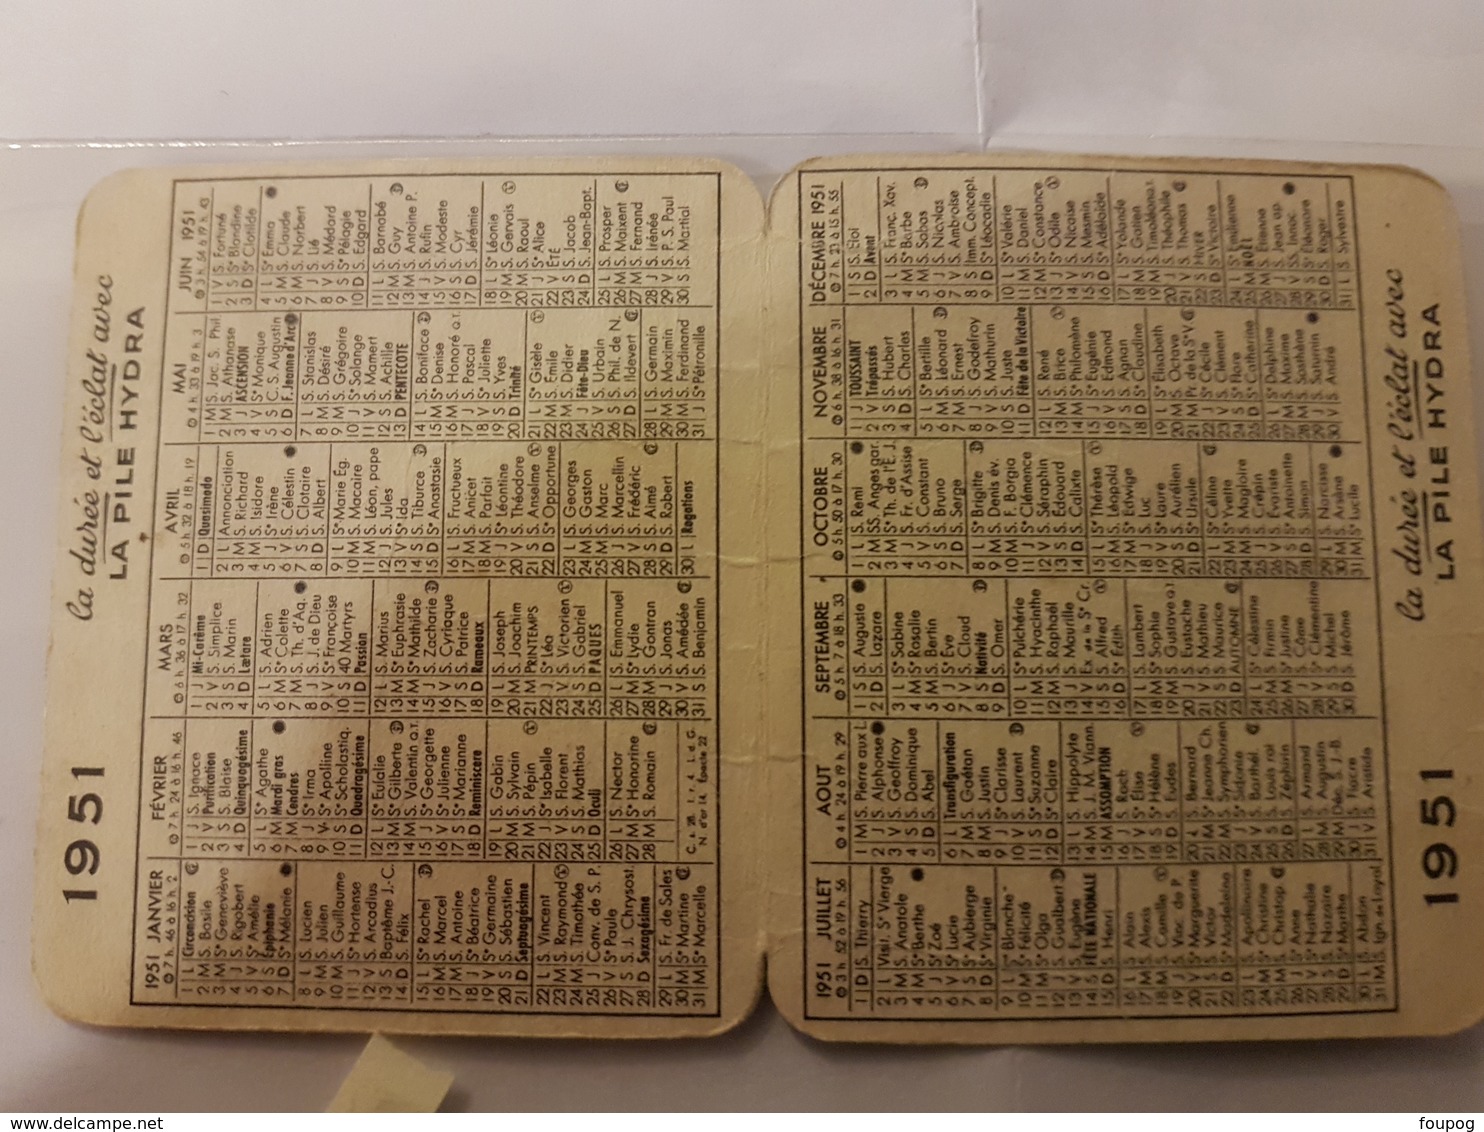 1951
la durée et l'éclat avec
LA PILE HYDRA
1951 JANVIER
7 h. 46 à 16 h. 2
1 L Circoncision
2 M S. Basile
3 M Sᵉ Geneviève
4 J S. Rigobert
5 V Sᵉ Amélie
6 S Epiphanie
7 D Sᵉ Mélanie
8 L S. Lucien
9 M S. Julien
10 M S. Guillaume
11 J Sᵉ Hortense
12 V S. Arcadius
13 S Baptême J.-C.
14 D S. Félix
15 L Sᵉ Rachel
16 M S. Marcel
17 M S. Antoine
18 J Sᵉ Béatrice
19 V Sᵉ Germaine
20 S S. Sébastien
21 D Septuagésime
22 L S. Vincent
23 M S. Raymond
24 M S. Timothée
25 J Conv. de S. P.
26 V Sᵉ Paule
27 S S. J. Chrysost.
28 D Sexagésime
29 L S. Fr de Sales
30 M Sᵉ Martine
31 M Sᵉ Marcelle
FÉVRIER
7 h. 24 à 16 h. 46
1 J S. Ignace
2 V Purification
3 S S. Blaise
4 D Quinquagésime
5 L Sᵉ Agathe
6 M Mardi gras
7 M Cendres
8 J Sᵉ Irma
9 V Sᵉ Apolline
10 S Sᵉ Scholastiq.
11 D Quadragésime
12 L Sᵉ Eulalie
13 M Sᵉ Gilberte
14 M S. Valentin Q.T.
15 J Sᵉ Georgette
16 V Sᵉ Julienne
17 S Sᵉ Marianne
18 D Reminiscere
19 L S. Gabin
20 M S. Sylvain
21 M S. Pépin
22 J Sᵉ Isabelle
23 V S. Florent
24 S S. Mathias
25 D Oculi
26 L S. Nector
27 M Sᵉ Honorine
28 M S. Romain
C. s. 28. I. r. 4. L. d. G.
N. d'or 14. Épacte 22
MARS
6 h. 36 à 17 h. 32
1 J Mi-Carême
2 V S. Simplice
3 S S. Marin
4 D Lætare
5 L S. Adrien
6 M Sᵉ Colette
7 M S. Th. d'Aq.
8 J S. J. de Dieu
9 V Sᵉ Françoise
10 S 40 Martyrs
11 D Passion
12 L S. Marius
13 M Sᵉ Euphrasie
14 M Sᵉ Mathilde
15 J S. Zacharie
16 V S. Cyriaque
17 S S. Patrice
18 D Rameaux
19 L S. Joseph
20 M S. Joachim
21 M PRINTEMPS
22 J Sᵉ Léa
23 V S. Victorien
24 S S. Gabriel
25 D PAQUES
26 L S. Emmanuel
27 M Sᵉ Lydie
28 M S. Gontran
29 J S. Jonas
30 V S. Amédée
31 S S. Benjamin
AVRIL
5 h. 32 à 18 h. 19
1 D Quasimodo
2 L Annonciation
3 M S. Richard
4 M S. Isidore
5 J Sᵉ Irène
6 V S. Célestin
7 S S. Clotaire
8 D S. Albert
9 L Sᵉ Marie Ég.
10 M S. Macaire
11 M S. Léon, pape
12 J S. Jules
13 V Sᵉ Ida
14 S S. Tiburce
15 D Sᵉ Anastasie
16 L S. Fructueux
17 M S. Anicet
18 M S. Parfait
19 J S. Léontine
20 V S. Théodore
21 S S. Anselme
22 D Sᵉ Opportune
23 L S. Georges
24 M S. Gaston
25 M S. Marc
26 J S. Marcellin
27 V S. Frédéric
28 S S. Aimé
29 D S. Robert
30 L Rogations
MAI
4 h. 33 à 19 h. 3
1 M S. Jac. S. Phil.
2 M S. Athanase
3 J ASCENSION
4 V Sᵉ Monique
5 S C. S. Augustin
6 D F. Jeanne d'Arc
7 L S. Stanislas
8 M S. Désiré
9 M S. Grégoire
10 J Sᵉ Solange
11 V S. Mamert
12 S S. Achille
13 D PENTECOTE
14 L S. Boniface
15 M Sᵉ Denise
16 M S. Honoré Q.T.
17 J S. Pascal
18 V Sᵉ Juliette
19 S S. Yves
20 D Trinité
21 L Sᵉ Gisèle
22 M S. Emile
23 M S. Didier
24 J Fête-Dieu
25 V S. Urbain
26 S S. Phil. de N.
27 D S. Ildevert
28 L S. Germain
29 M S. Maximin
30 M S. Ferdinand
31 J Sᵉ Pétronille
JUIN 1951
3 h. 54 à 19 h. 43
1 V S. Fortuné
2 S Sᵉ Blandine
3 D Sᵉ Clotilde
4 L Sᵉ Emma
5 M S. Claude
6 M S. Norbert
7 J S. Lié
8 V S. Médard
9 S Sᵉ Pélagie
10 D S. Edgard
11 L S. Barnabé
12 M S. Guy
13 M S. Antoine P.
14 J S. Rufin
15 V S. Modeste
16 S S. Cyr
17 D S. Jérémie
18 L S. Léonie
19 M S. Gervais
20 M S. Raoul
21 J Sᵉ Alice
22 V ÉTÉ
23 S S. Jacob
24 D S. Jean-Bapt.
25 L S. Prosper
26 M S. Maixent
27 M S. Fernand
28 J S. Irénée
29 V S. P. S. Paul
30 S S. Martial
1951 JUILLET
3 h. 52 à 19 h. 56
1 D S. Thierry
2 L Visit. Sᵉ Vierge
3 M S. Anatole
4 M Sᵉ Berthe
5 J Sᵉ Zoé
6 V Sᵉ Lucie
7 S Sᵉ Auberge
8 D Sᵉ Virginie
9 L Sᵉ Blanche
10 M Sᵉ Félicité
11 M Sᵉ Olga
12 J S. Gualbert
13 V S. Eugène
14 S FÊTE NATIONALE
15 D S. Henri
16 L S. Alain
17 M S. Alexis
18 M S. Camille
19 J S. Vinc. de P.
20 V Sᵉ Marguerite
21 S S. Victor
22 D Sᵉ Madeleine
23 L S. Apollinaire
24 M Sᵉ Christine
25 M S. Christop.
26 J Sᵉ Anne
27 V Sᵉ Nathalie
28 S S. Nazaire
29 D Sᵉ Marthe
30 L S. Abdon
31 M S. Ign. de Loyol.
AOUT
4 h. 24 à 19 h. 29
1 M S. Pierre aux L.
2 J S. Alphonse
3 V S. Geoffroy
4 S S. Dominique
5 D S. Abel
6 L Transfiguration
7 M S. Gaétan
8 M S. Justin
9 J Sᵉ Clarisse
10 V S. Laurent
11 S Sᵉ Suzanne
12 D Sᵉ Claire
13 L S. Hippolyte
14 M S. J. M. Viann.
15 M ASSOMPTION
16 J S. Roch
17 V Sᵉ Elise
18 S Sᵉ Hélène
19 D S. Eudes
20 L S. Bernard
21 M Sᵉ Jeanne Ch.
22 M S. Symphorien
23 J Sᵉ Sidonie
24 V S. Barthél.
25 S S. Louis roi
26 D S. Zéphirin
27 L S. Armand
28 M S. Augustin
29 M Déc. S. J.-B.
30 J S. Fiacre
31 V S. Aristide
SEPTEMBRE
5 h. 7 à 18 h. 33
1 S S. Auguste
2 D S. Lazare
3 L Sᵉ Sabine
4 M Sᵉ Rosalie
5 M S. Bertin
6 J Sᵉ Eve
7 V S. Cloud
8 S Nativité
9 D S. Omer
10 L Sᵉ Pulchérie
11 M S. Hyacinthe
12 M S. Raphaël
13 J S. Maurille
14 V Ex de la Sᵉ Cr.
15 S S. Alfred
16 D Sᵉ Edith
17 L S. Lambert
18 M Sᵉ Sophie
19 M S. Gustave Q.T.
20 J S. Eustache
21 V S. Mathieu
22 S S. Maurice
23 D AUTOMNE
24 L Sᵉ Célestine
25 M S. Firmin
26 M Sᵉ Justine
27 J S. Côme
28 V Sᵉ Clémentine
29 S S. Michel
30 D S. Jérôme
OCTOBRE
5 h. 50 à 17 h. 30
1 L S. Remi
2 M SS. Anges gar.
3 M S. Th. de l'E. J.
4 J S. Fr. d'Assise
5 V S. Constant
6 S S. Bruno
7 D S. Serge
8 L Sᵉ Brigitte
9 M S. Denis év.
10 M S. F. Borgia
11 J S. Clémence
12 V S. Séraphin
13 S S. Edouard
14 D S. Calixte
15 L Sᵉ Thérèse
16 M S. Léopold
17 M Sᵉ Edwige
18 J S. Luc
19 V Sᵉ Laure
20 S S. Aurélien
21 D Sᵉ Ursule
22 L Sᵉ Céline
23 M Sᵉ Yvette
24 M S. Magloire
25 J S. Crépin
26 V S. Evariste
27 S Sᵉ Antoinette
28 D S. Simon
29 L S. Narcisse
30 M S. Arsène
31 M Sᵉ Lucile
NOVEMBRE
6 h. 38 à 16 h. 31
1 J TOUSSAINT
2 V Trépassés
3 S S. Hubert
4 D S. Charles
5 L Sᵉ Bertille
6 M S. Léonard
7 M S. Ernest
8 J S. Godefroy
9 V S. Mathurin
10 S S. Juste
11 D Fête de la Victoire
12 L S. René
13 M S. Brice
14 M Sᵉ Philomène
15 J Sᵉ Eugénie
16 V S. Edmond
17 S S. Agnan
18 D Sᵉ Claudine
19 L Sᵉ Elisabeth
20 M S. Octave
21 M Pr. de la Sᵉ V
22 J Sᵉ Cécile
23 V S. Clément
24 S Sᵉ Flore
25 D Sᵉ Catherine
26 L Sᵉ Delphine
27 M S. Maxime
28 M S. Sosthène
29 J S. Saturnin
30 V S. André
DÉCEMBRE 1951
7 h. 23 à 15 h. 55
1 S S. Eloi
2 D Avent
3 L S. Franç. Xav.
4 M Sᵉ Barbe
5 M S. Sabas
6 J S. Nicolas
7 V S. Ambroise
8 S Imm. Concept.
9 D Sᵉ Léocadie
10 L Sᵉ Valérie
11 M S. Daniel
12 M Sᵉ Constance
13 J Sᵉ Odile
14 V S. Nicaise
15 S S. Mesmin
16 D Sᵉ Adélaïde
17 L Sᵉ Yolande
18 M S. Gatien
19 M S. Timoléon Q.T.
20 J S. Théophile
21 V S. Thomas
22 S HIVER
23 D Sᵉ Victoire
24 L Sᵉ Emilienne
25 M NOËL
26 M S. Etienne
27 J S. Jean ap.
28 V SS. Innoc.
29 S Sᵉ Eléonore
30 D S. Roger
31 L S. Sylvestre
1951
la durée et l'éclat avec
LA PILE HYDRA
foupog